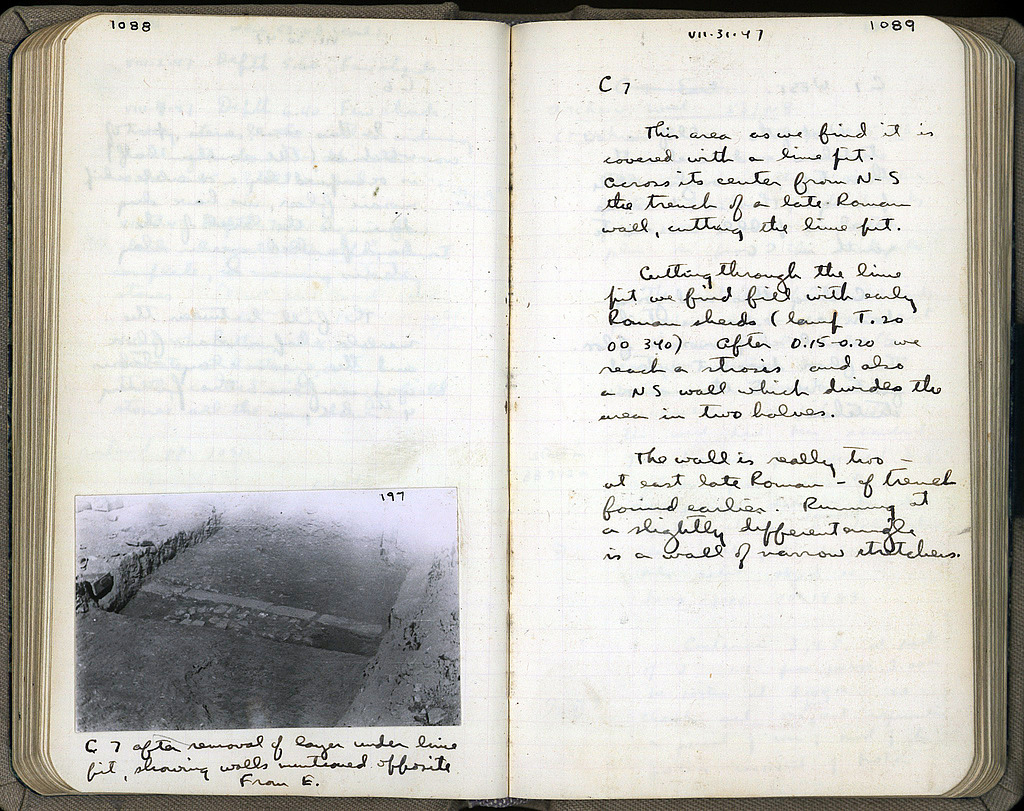 1088
197
C 7 after removal of layer under lime
pit, showing walls mentioned opposite
From E.
VII-31-47
1089
C 7
This area as we find it is
covered with a lime pit.
Across its center from N-S
the trench of a late Roman
wall, cutting the lime pit.
Cutting through the lime
pit we find fill with early
Roman sherds (lamp T.20
00 340) After 0.15-0.20 we
reach a strosis and also
a NS wall which divides the
area in two halves.
The wall is really two -
at east late Roman - of trench
found earlier. Running at
a slightly different angle
is a wall of narrow stretchers.